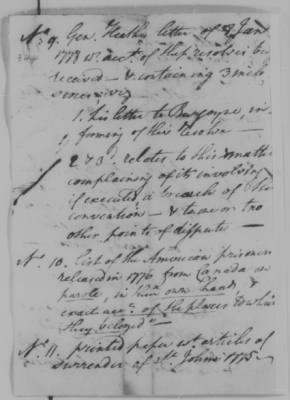 No. 9. Genl. Heath's letter of 8 Jany
1778 wt. acct. of these resolves being
received — & containing 3 inclo
sures viz
1. his letter to Burgoyne, in
forming of this resolve —
2 & 3. relates to this matter
complaining of its involving
if executed a breach of the
convention — & to one or two
other points of dispute —
No. 10. List of the American prisoners
released in 1776 from Canada on
parole, in their own hands, &
exact acct. of the places to which
they belonged
No. 11. printed paper wt. articles of
surrender of St. Johns 1775 —